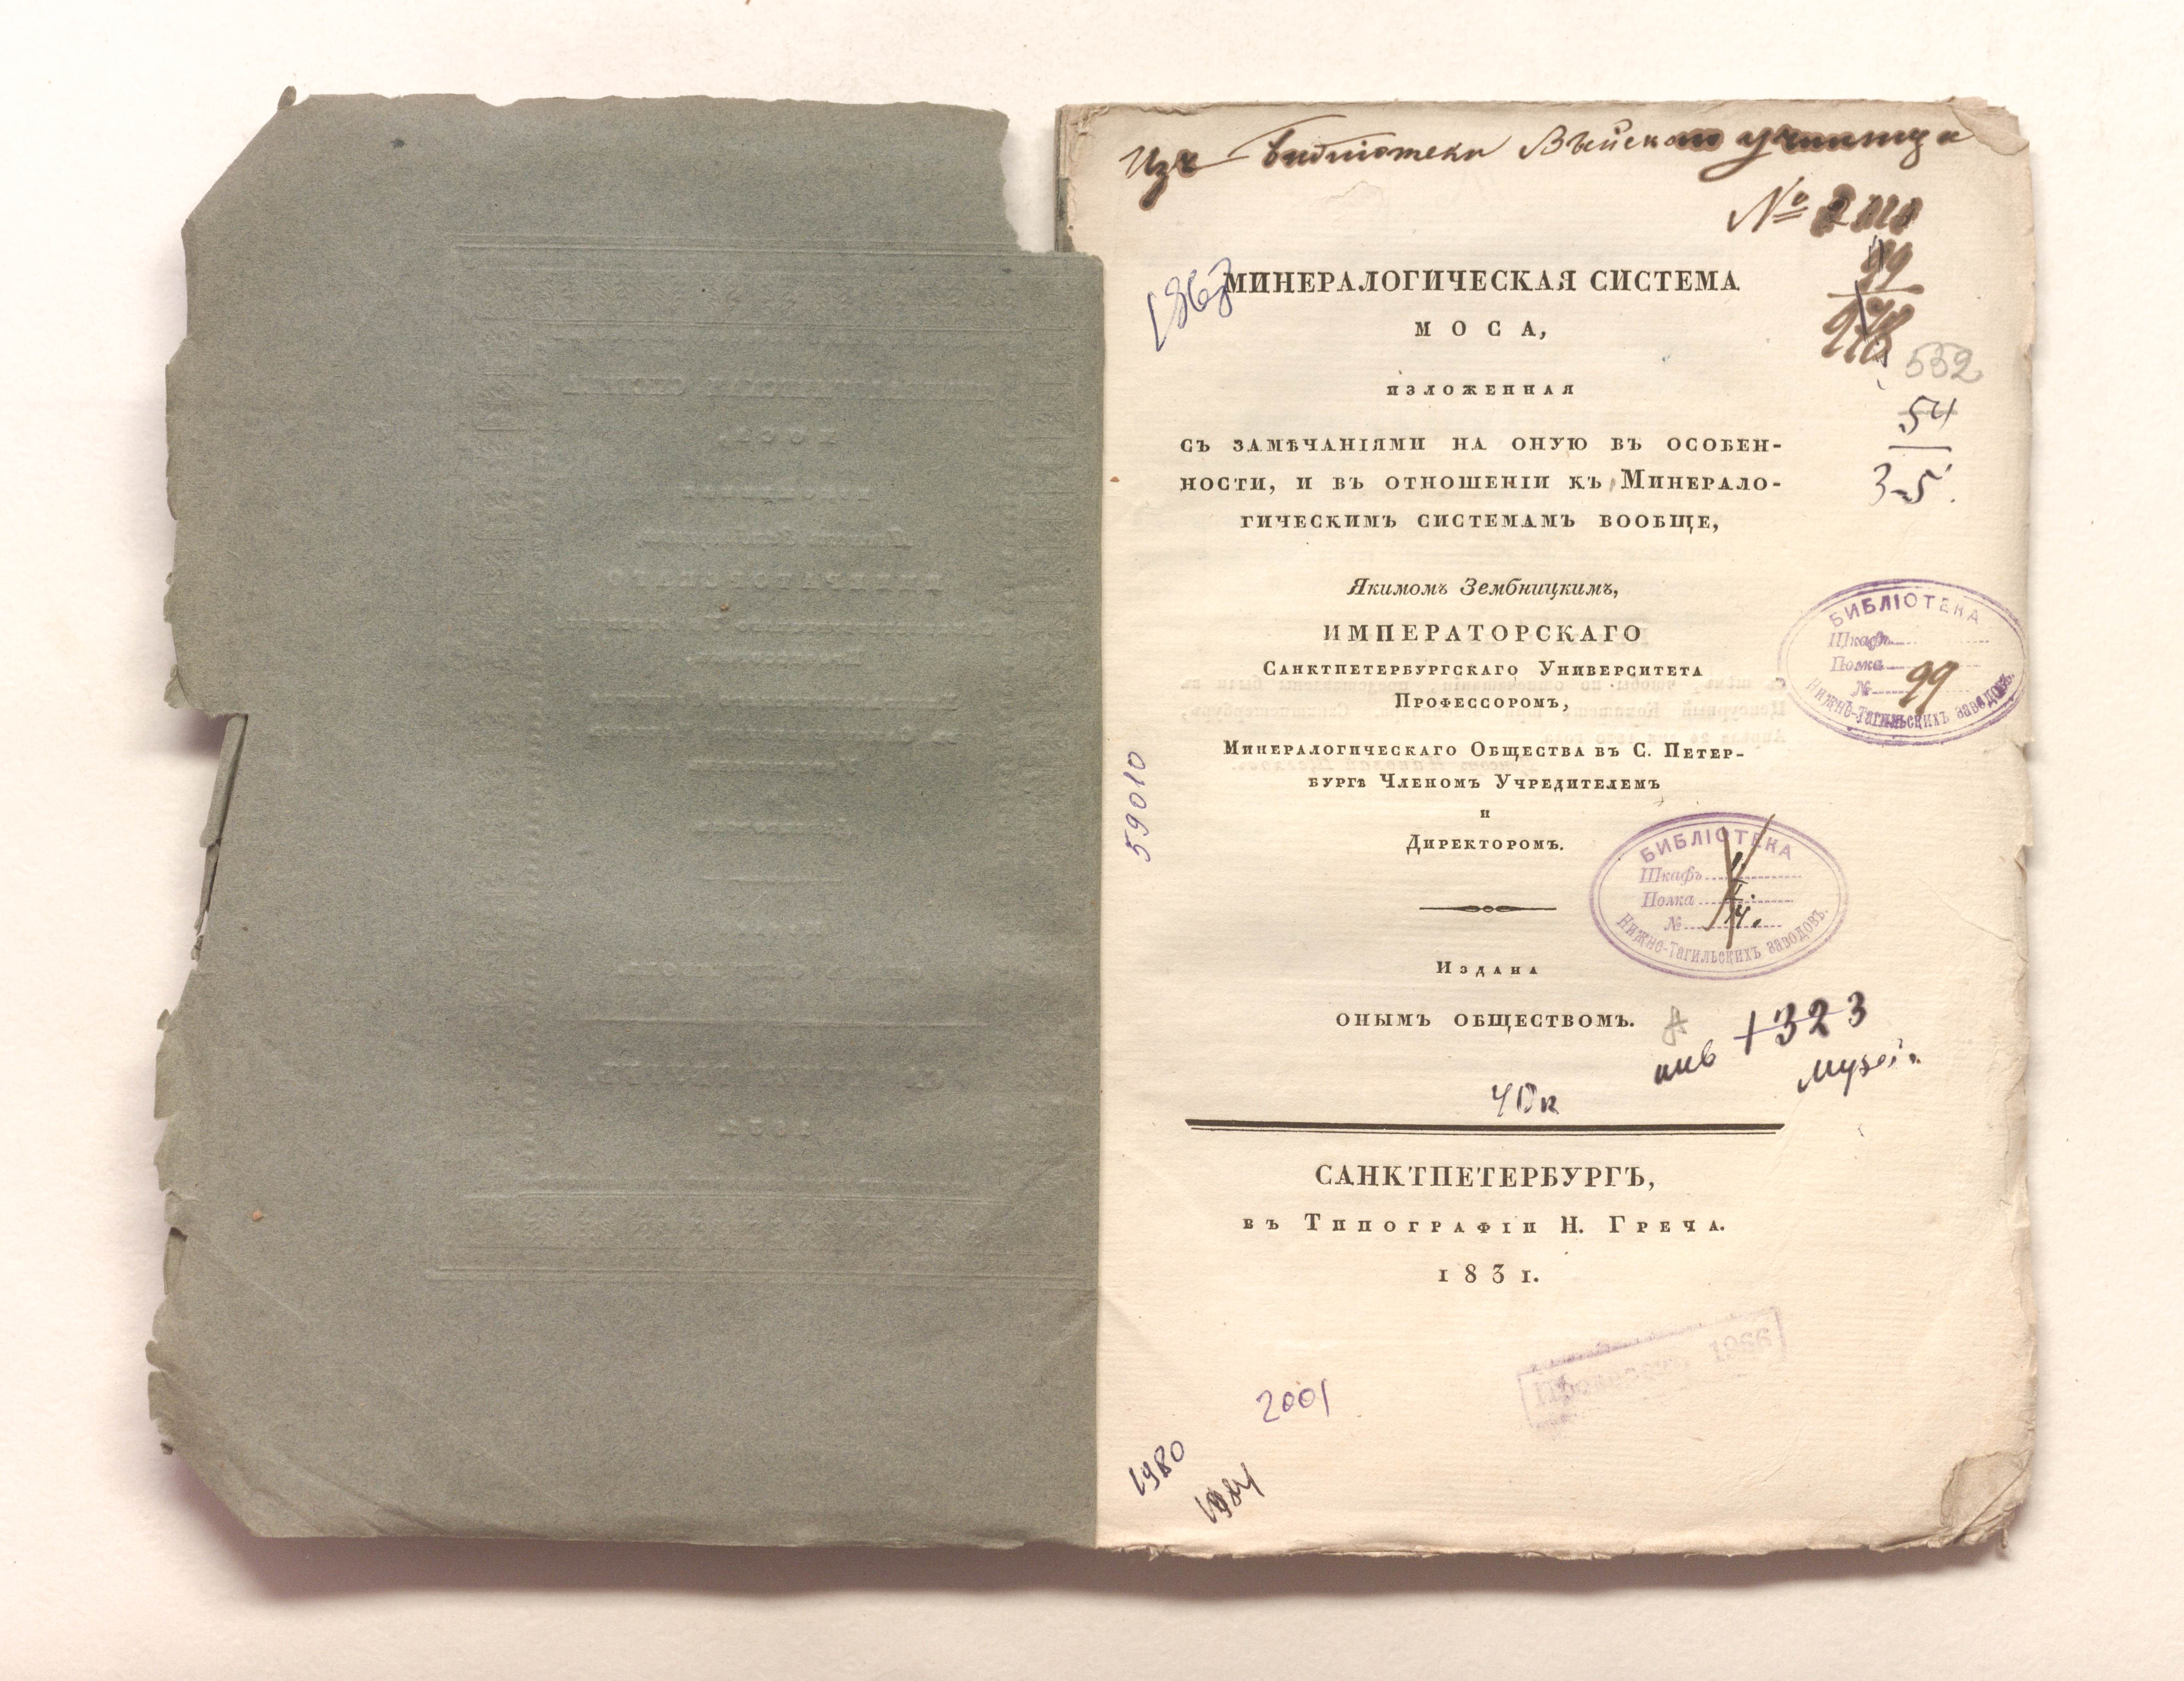 Изъ библіотеки Выйскаго училища
№
99
532
54
35.
МИНЕРАЛОГИЧЕСКАЯ СИСТЕМА
МОСА,
ИЗЛОЖЕННАЯ
СЪ ЗАМѢЧАНІЯМИ НА ОНУЮ ВЪ ОСОБЕН-
НОСТИ, И ВЪ ОТНОШЕНІИ КЪ МИНЕРАЛО-
ГИЧЕСКИМЪ СИСТЕМАМЪ ВООБЩЕ,
Якимомъ Зембницкимъ,
ИМПЕРАТОРСКАГО
САНКТПЕТЕРБУРГСКАГО УНИВЕРСИТЕТА
ПРОФЕССОРОМЪ,
МИНЕРАЛОГИЧЕСКАГО ОБЩЕСТВА ВЪ С. ПЕТЕР-
БУРГѢ ЧЛЕНОМЪ УЧРЕДИТЕЛЕМЪ
И
ДИРЕКТОРОМЪ.
БИБЛІОТЕКА
Шкафъ
Полка
№ 99
Нижне-Тагильскихъ заводовъ.
59010
БИБЛІОТЕКА
Шкафъ
Полка
№ 14.
Нижне-Тагильскихъ заводовъ.
ИЗДАНА
ОНЫМЪ ОБЩЕСТВОМЪ.
инв 1323
Музей
40к
САНКТПЕТЕРБУРГЪ,
ВЪ ТИПОГРАФІИ Н. ГРЕЧА.
1831.
1966
2001
1980
1984